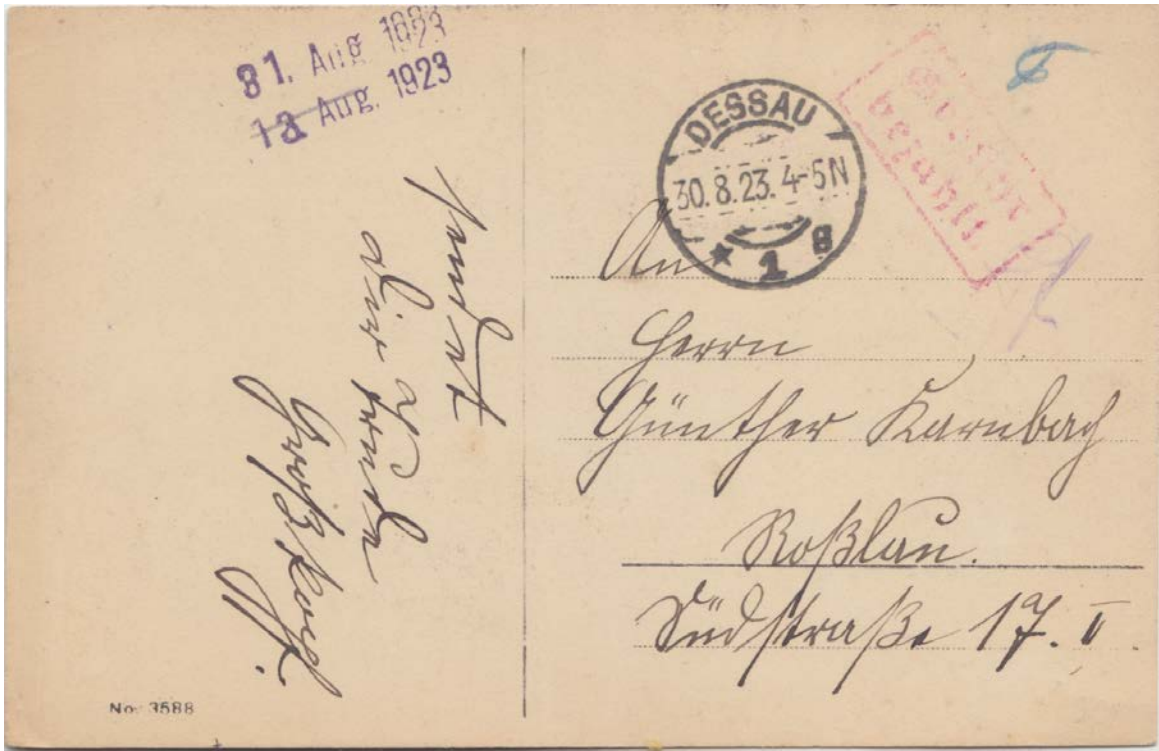 31. Aug. 1923
13 Aug. 1923
DESSAU
30.8.23. 4-5N
* 1 g
Gebühr
bezahlt.
sendet
Dir Trude
Großkopf.
An
Herrn
Günther Karnbach
Roßlau.
Südstraße 17. I
No. 3588